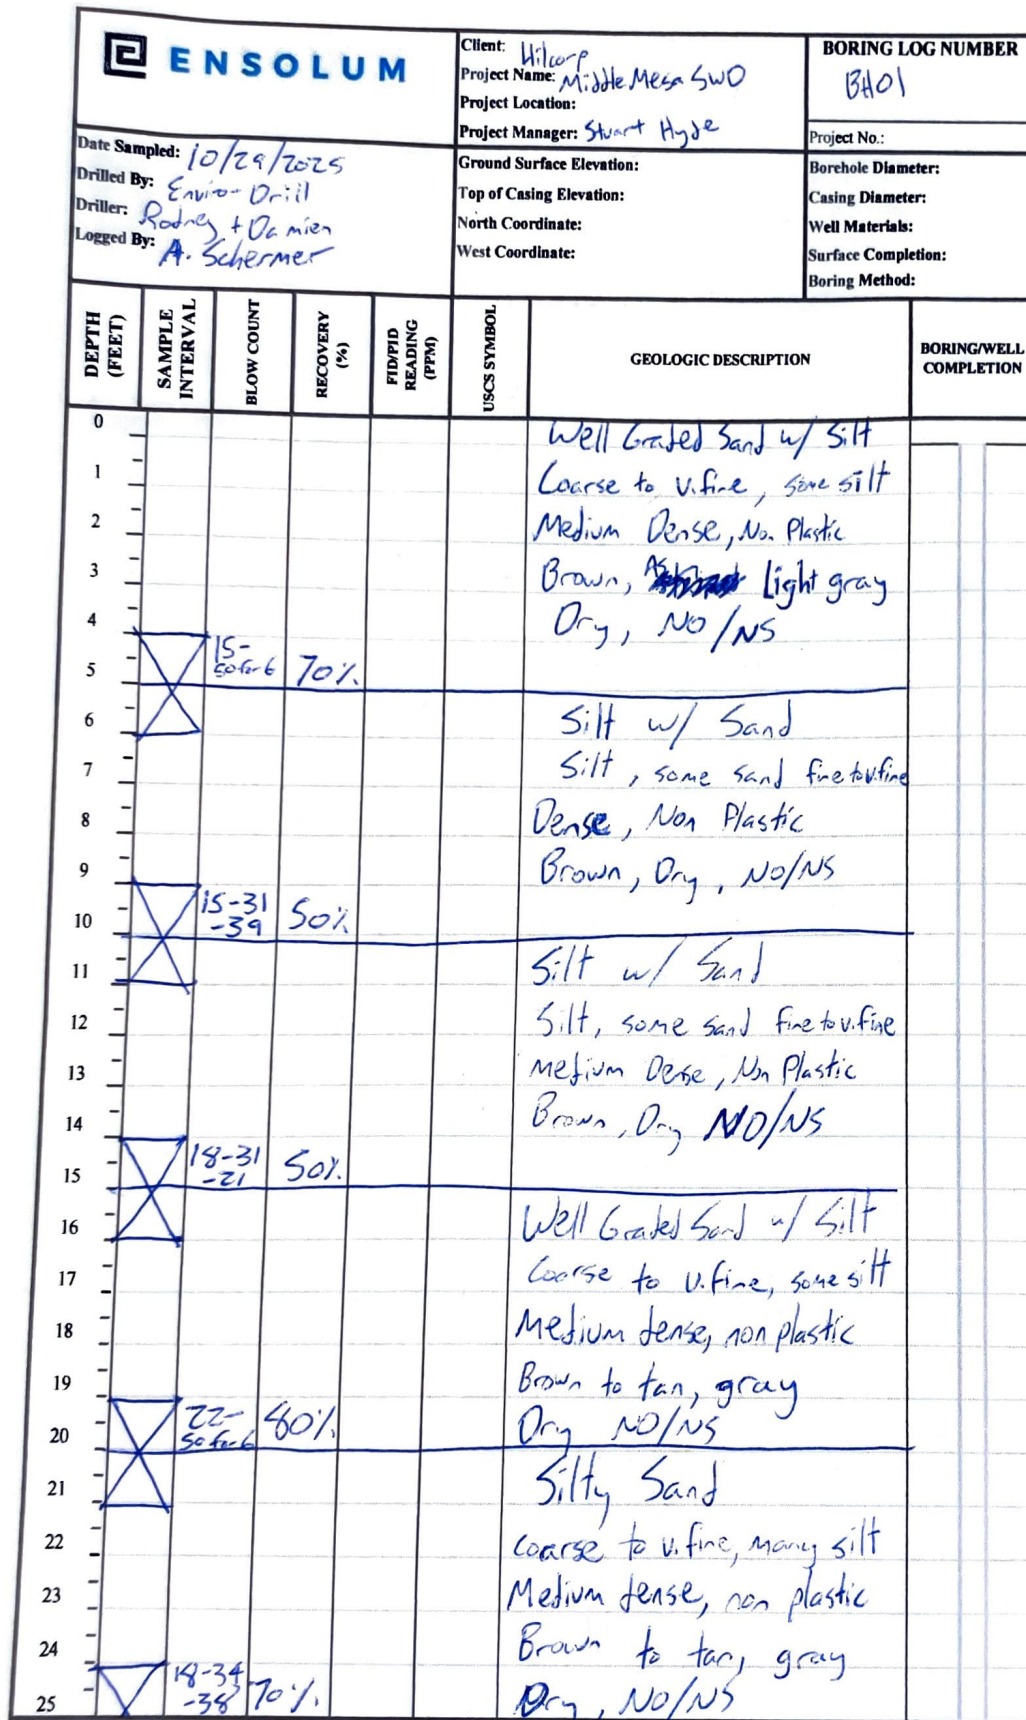 ENSOLUM
Client: Hilcorp
Project Name: Middle Mesa SWD
Project Location:
Project Manager: Stuart Hyde
BORING LOG NUMBER
BH01
Project No.:
Date Sampled: 10/29/2025
Drilled By: Enviro-Drill
Driller: Rodney + Damien
Logged By: A. Schermer
Ground Surface Elevation:
Top of Casing Elevation:
North Coordinate:
West Coordinate:
Borehole Diameter:
Casing Diameter:
Well Materials:
Surface Completion:
Boring Method:
DEPTH (FEET)
SAMPLE INTERVAL
BLOW COUNT
RECOVERY (%)
FID/PID READING (PPM)
USCS SYMBOL
GEOLOGIC DESCRIPTION
BORING/WELL COMPLETION
0
Well Graded Sand w/ Silt
1 Coarse to v.fine, some silt
2 Medium Dense, Non Plastic
3 Brown, Light gray
4 Dry, NO/NS
15-
5 50 for 6 70%
6 Silt w/ Sand
7 Silt, some sand fine to v.fine
8 Dense, Non Plastic
9 Brown, Dry, NO/NS
15-31
10 -39 50%
11 Silt w/ Sand
12 Silt, some sand fine to v.fine
13 Medium Dense, Non Plastic
14 Brown, Dry NO/NS
18-31
15 -21 50%
16 Well Graded Sand w/ Silt
17 Coarse to v.fine, some silt
18 Medium dense, non plastic
19 Brown to tan, gray
22- 80% Dry NO/NS
20 50 for 6
21 Silty Sand
22 coarse to v.fine, many silt
23 Medium dense, non plastic
24 Brown to tan, gray
18-34
25 -38 70% Dry, NO/NS